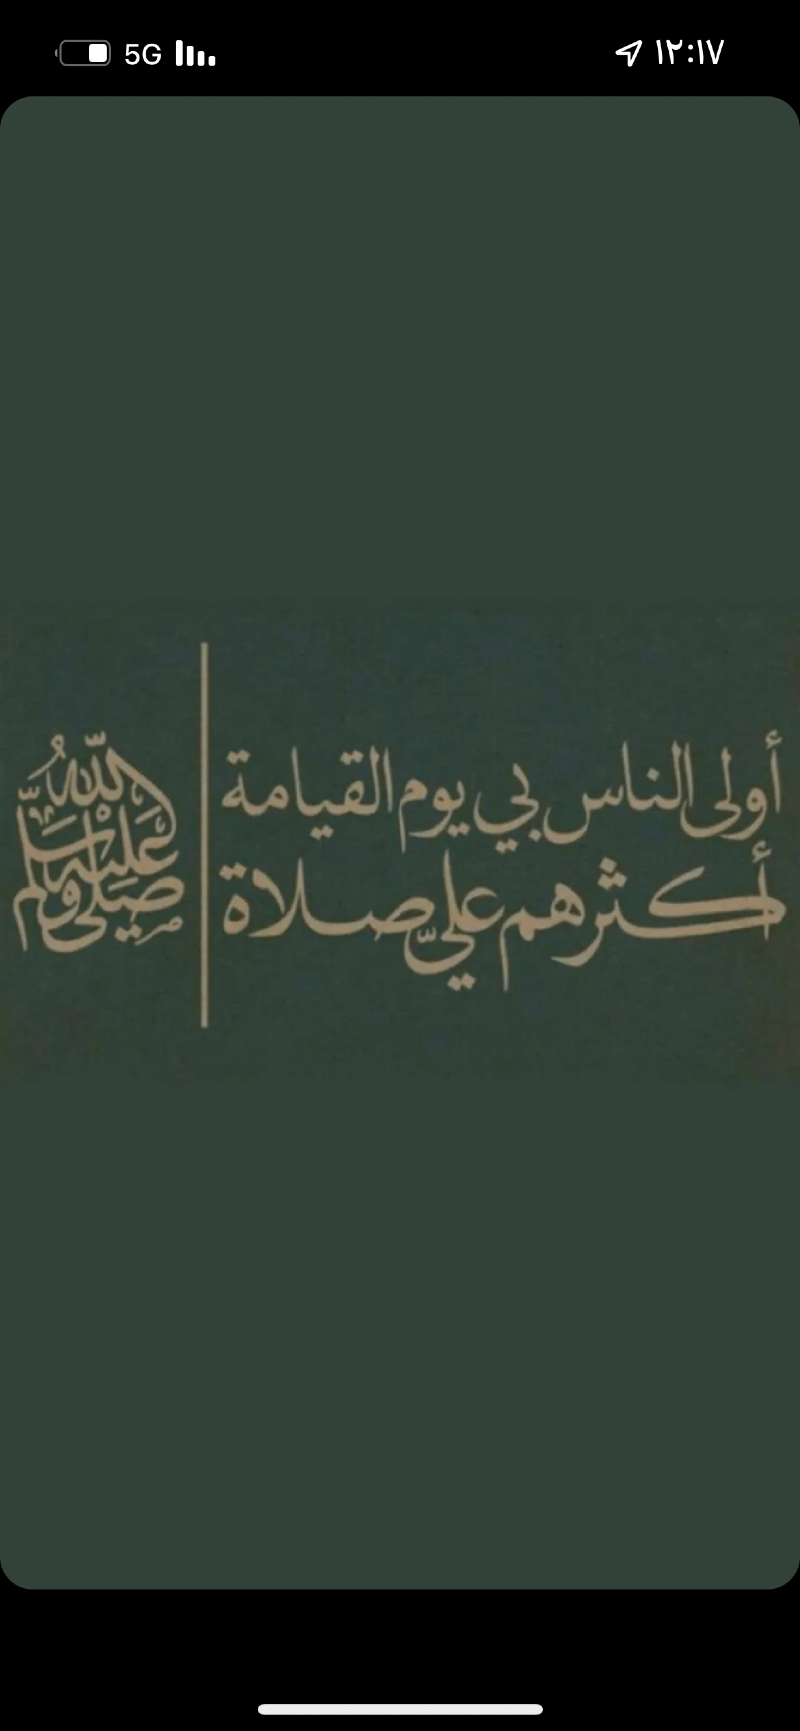 5G ١٢:١٧
أولى الناس بي يوم القيامة
أكثرهم عليّ صلاة
صلى الله عليه وسلم